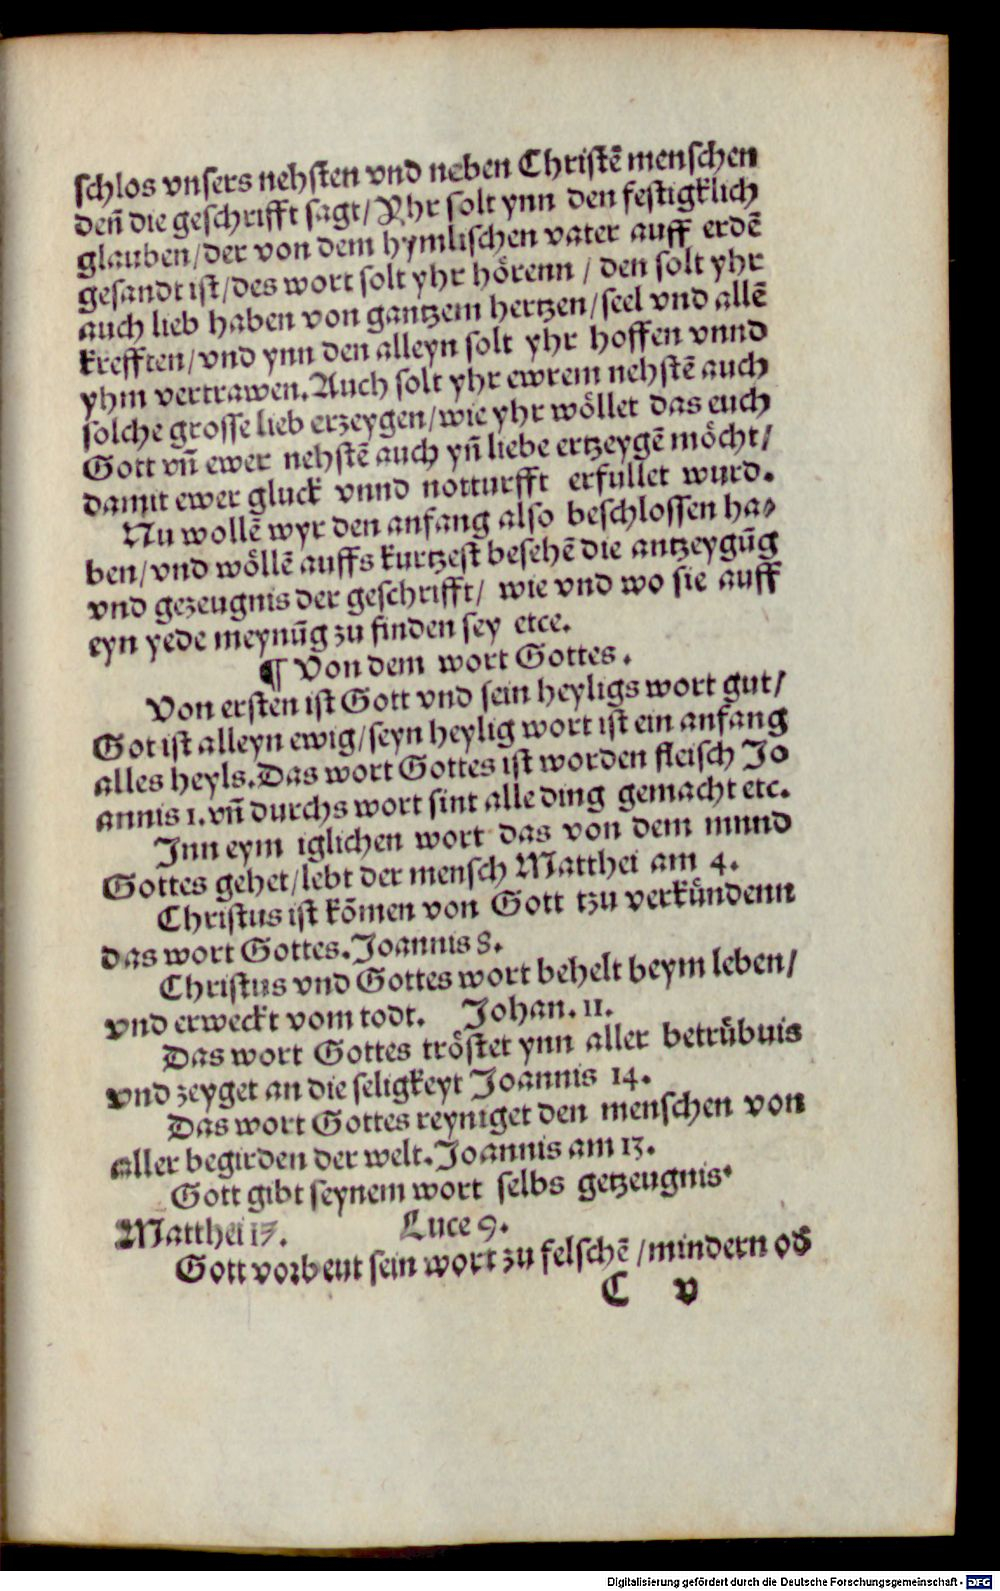 schlos vnsers nehsten vnd neben Christē menschen
deñ die geschrifft sagt/Yhr solt ynn den festigklich
glauben/der von dem hymlischen vater auff erdē
gesandt ist/des wort solt yhr hörenn / den solt yhr
auch lieb haben von gantzem hertzen/seel vnd allē
krefften/vnd ynn den alleyn solt yhr hoffen vnnd
yhm vertrawen.Auch solt yhr ewrem nehstē auch
solche grosse lieb erzeygen/wie yhr wöllet das euch
Gott vñ ewer nehstē auch yñ liebe ertzeygē möcht/
damit ewer gluck vnnd notturfft erfullet wurd.
Nu wollē wyr den anfang also beschlossen ha-
ben/vnd wöllē auffs kurtzest besehē die antzeygūg
vnd gezeugnis der geschrifft/ wie vnd wo sie auff
eyn yede meynūg zu finden sey etce.
¶ Von dem wort Gottes.
Von ersten ist Gott vnd sein heyligs wort gut/
Got ist alleyn ewig/seyn heylig wort ist ein anfang
alles heyls.Das wort Gottes ist worden fleisch Jo
annis 1.vñ durchs wort sint alle ding gemacht etc.
Jnn eym iglichen wort das von dem mund
Gottes gehet/lebt der mensch Matthei am 4.
Christus ist kōmen von Gott tzu verkündenn
das wort Gottes.Joannis 8.
Christus vnd Gottes wort behelt beym leben/
vnd erweckt vom todt. Johan.11.
Das wort Gottes tröstet ynn aller betrübnis
vnd zeyget an die seligkeyt Joannis 14.
Das wort Gottes reyniget den menschen von
aller begirden der welt.Joannis am 13.
Gott gibt seynem wort selbs getzeugnis.
Matthei 17. Luce 9.
Gott vorbeut sein wort zu felschē /mindern oď
C v
Digitalisierung gefördert durch die Deutsche Forschungsgemeinschaft - DFG